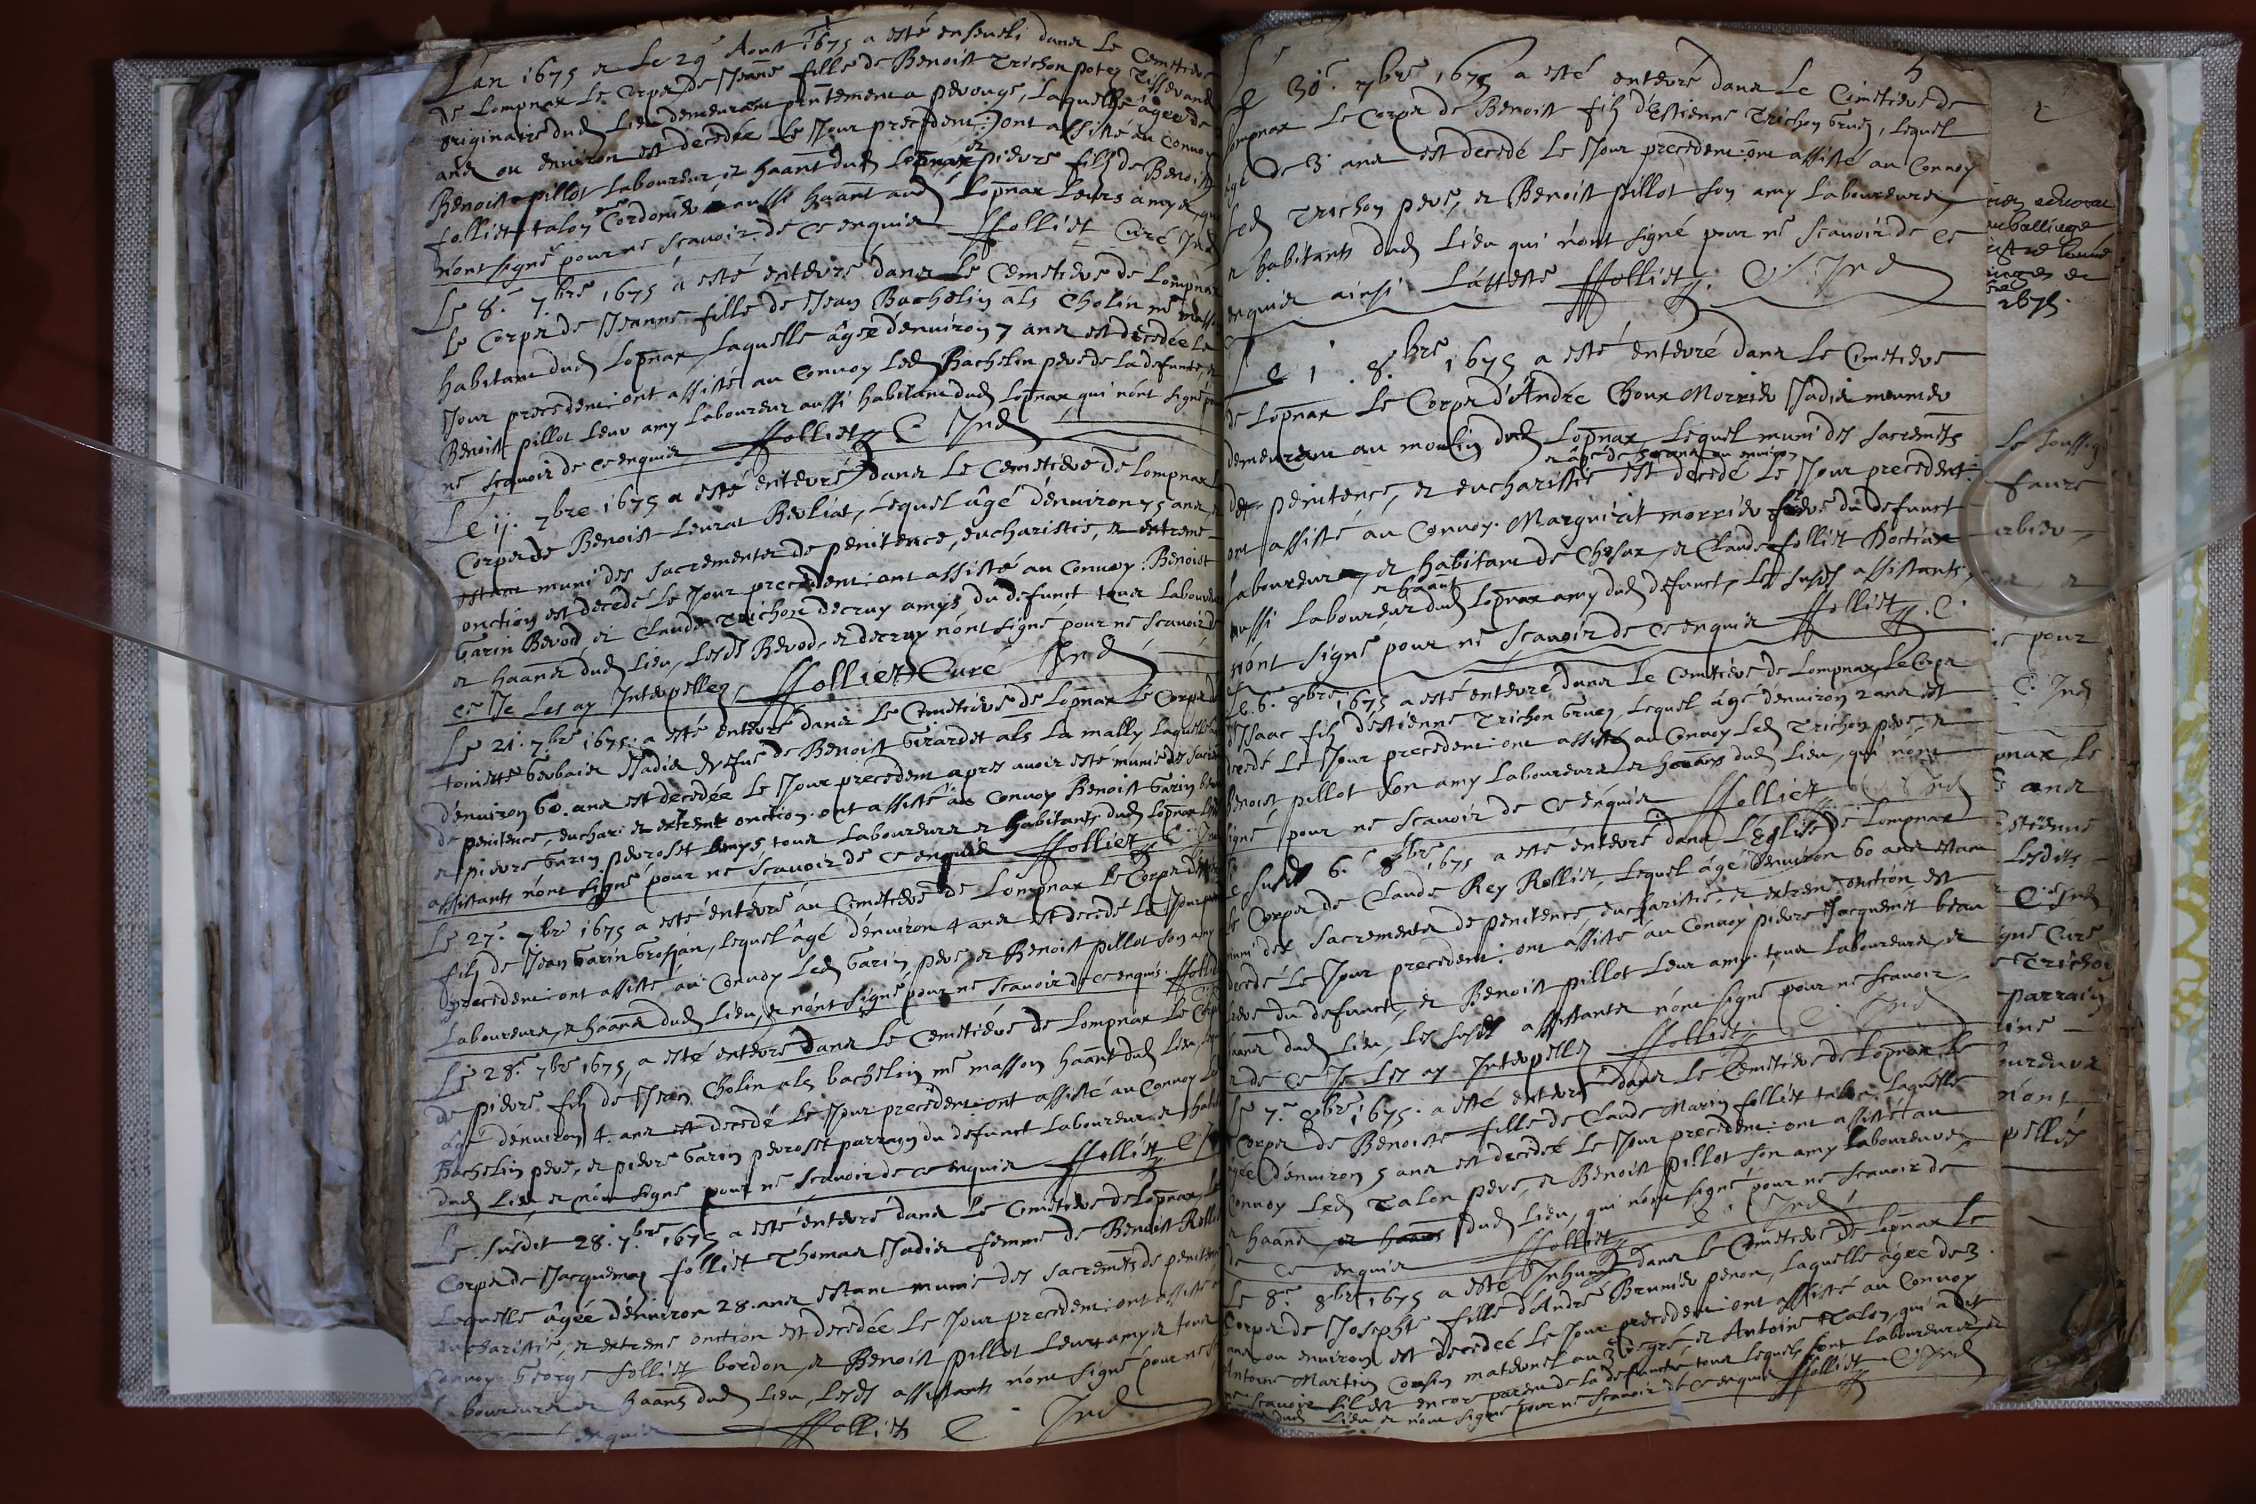 L'an 1675 et Le 29e Aoust 1675 a esté enseveli dans Le Cemetiere
de Lompnax Le Corps de Jeanne fille de Benoist Trichon Tisserand
originaire dud Lieu demeurant pntement a perouge, Laquelle âgée de
ans ou environ est decedée Le Jour precedent: ont assisté au Convoy
Benoist pillot Laboureur, et haant dud Lopnax et pierre filz de Benoist
folliet talon Cordonier aussi haant aud Lopnax Leurs amys, qui
n'ont signé pour ne scavoir de ce enquis ffolliet Curé Ind
Le 8e 7bre 1675 a esté enterré dans Le Cemetiere de Lompnax
le Corps de Jeanne fille de Jean Bachelin als Cholin me masson
habitant dud Lopnax Laquelle âgée d'environ 7 ans est decedée Le
Jour precedent: ont assisté au Convoy Led Bachelin pere de la defunte, et
Benoist pillot leur amy Laboureur aussi habitant dud Lopnax qui n'ont signé pr
ne scavoir de ce enquis ffolliet C Ind
Le ij. 7bre 1675 a esté enterré dans Le Cemetiere de Lompnax
Corps de Benoist Leurat Berliat, Lequel âgé d'environ 75 ans,
estant muni des sacrements de penitence, eucharistie, et extreme
onction est decedé Le Jour precedent: ont assisté au Convoy: Benoist
Garin Berod et Claude Trichon decruy amys du defunct tous Laboureurs
et haans dud Lieu, Lesds Berod, et decruy n'ont signé pour ne scavoir de
ce Je Les ay Interpellez ffolliet Curé Ind
Le 21. 7bre 1675. a esté enterré dans Le Cemetiere de Lopnax Le Corps
toinette Gerbais Jadis vefue de Benoist Girardet als La mally Laquelle
d'environ 60. ans est decedée Le Jour precedent apres avoir esté munie des
de penitence, euchar: et extreme onction. ont assisté au Convoy Benoist Garin
et pierre Garin peroset amys tous Laboureurs et habitants dud Lopnax
assistants n'ont signé pour ne scavoir de ce enquis ffolliet C. Ind
Le 27e 7bre 1675 a esté enterré au Cemetiere de Lompnax Le Corps
filz de Jean Garin Grosjan, Lequel âgé d'environ 4 ans est decedé Le Jour
precedent: ont assisté au Convoy Led Garin, pere, et Benoist pillot son amy
Laboureurs, et haans dud Lieu, et n'ont signé pour ne scavoir de ce enquis. ffolliet
Le 28e 7bre 1675, a esté enterré dans Le Cemetiere de Lompnax Le Corps
de pierre filz de Jean Cholin als bachelin me masson haant dud Lieu
âgé d'environ 4. ans est decedé Le Jour precedent: ont assisté au Convoy Led
Bachelin pere, et pierre Garin peroset parrain du defunct Laboureurs et
dud Lieu, et n'ont signé pour ne scavoir de ce enquis ffolliet C
Le susdit 28. 7bre 1675 a esté enterré dans Le Cemetiere de Lopnax, Le
Corps de Jacquemaz folliet Thomas Jadis femme de Benoist
Laquelle âgée d'environ 28. ans estant munie des sacrements de penitence
eucharistie, et extreme onction est decedée Le Jour precedent: ont assisté au
Convoy George folliet bordon, et Benoist pillot Leurs amys tous
Laboureurs et haans dud Lieu, Lesds assistants n'ont signé pour ne
enquis ffolliet C Ind
5
Le 30e. 7bre 1675 a esté enterré dans Le Cimetiere de
Lompnax Le Corps de Benoist filz d'Estienne Trichon Gruez, Lequel
âgé de 3 ans est decedé Le Jour precedent: ont assisté au Convoy
Led Trichon pere, et Benoist pillot son amy Laboureurs,
et habitants dud Lieu qui n'ont signé pour ne scavoir de ce
enquis ainsi L'atteste ffolliet. C. Ind
Le 1. 8.bre 1675 a esté enterré dans Le Cimetiere
de Lopnax Le Corps d'André Choux Morrier Jadis meunier
demeurant au moulin dud Lopnax, Lequel muni des sacremets
et âgé de ans ou environ
de penitence, et eucharistie est decedé Le Jour precedent:
ont assisté au Convoy. Marguerit morrier frere du defunct
Laboureur, et habitant de Chesax, et Claude folliet
et haant
aussi Laboureur dud Lopnax amy dud defunct, Les susds assistants,
n'ont signé pour ne scavoir de ce enquis ffolliet. C.
Le 6. 8bre 1675 a esté enterré dans Le Cemetiere de Lompnax Le Corps
d'Isaac filz d'Estienne Trichon Gruez, Lequel âgé d'environ 2 ans est
decedé Le Jour precedent: ont assisté au Convoy Led Trichon pere, et
Benoist pillot son amy Laboureurs et haans dud Lieu, qui n'ont
signé pour ne scavoir de ce enquis ffolliet C Ind
Le susdt 6e 8bre 1675 a esté enterré dans L'eglise de Lompnax
Le Corps de Claude Rey Rolliet, Lequel âgé d'environ 60 ans estant
muni des sacrements de penitence, eucharistie, et extrem' onction est
decedé Le Jour precedent: ont assisté au Convoy pierre Jacquemet beau
frere du defunct, et Benoist pillot Leur amy. tous Laboureurs, et
haans dud Lieu, Les susds assistants n'ont signé pour ne scavoir
et de ce Je Les ay Interpellez ffolliet C. Ind
Le 7e 8bre 1675. a esté enterré dans Le Cemetiere de Lopnax, Le
Corps de Benoiste fille de Claude Marin folliet talon, Laquelle
âgée d'environ 5 ans est decedée Le Jour precedent: ont assisté au
Convoy Led Talon pere, et Benoist pillot son amy Laboureurs,
et haans, et haans dud Lieu, qui n'ont signé pour ne scavoir de
de ce enquis ffolliet C. Ind
Le 8e 8bre 1675 a esté Inhumé dans le Cemetiere de Lopnax Le
Corps de Josephte fille d'André Brunier penon, Laquelle âgée de 3.
ans ou environ est decedée Le Jour precedent: ont assisté au Convoy
Antoine Martin Cousin maternel au 3 degré, et Antoine Talon, qui a dit
ne scavoir s'il est encore parent de la defuncte tous Lequels sont Laboureurs, et
dud Lieu et n'ont signé pour ne scavoir de ce enquis ffolliet C. Ind
2
1675.
Le soussig
faure
pour
C. Ind
pnax, Le
ans
Estienne
Lesdits
C. Ind
gné Curé
Trichon
parrain
n'ont